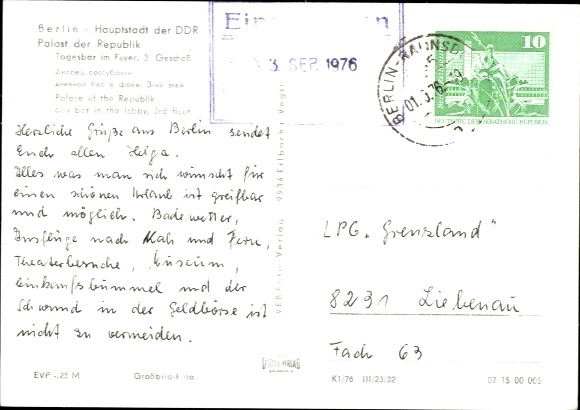 Berlin - Hauptstadt der DDR
Palast der Republik
Tagesbar im Foyer, 3. Geschoß
Дворец республики
дневной бар в фойе, 3-ий этаж
Palace of the Republik
bar in the lobby, 3rd floor
3. SEP. 1976
BERLIN-KAULSD
01. 76
10
DEUTSCHE DEMOKRATISCHE REPUBLIK
Herzliche Grüße aus Berlin sendet
Euch allen Helga.
Alles was man sich wünscht für
einen schönen Urlaub ist greifbar
und möglich. Badewetter,
Ausflüge nach Nah und Fern,
Theaterbesuche, Museum,
Einkaufsbummel und der
Schwund in der Geldbörse ist
nicht zu vermeiden.
VEB Foto-Verlag 9934 Erlbach i. Vogtl
LPG. „Grenzland"
8231 Liebenau
Fach 63
EVP -,25 M
K1/76 III/23/32
07 15 00 005